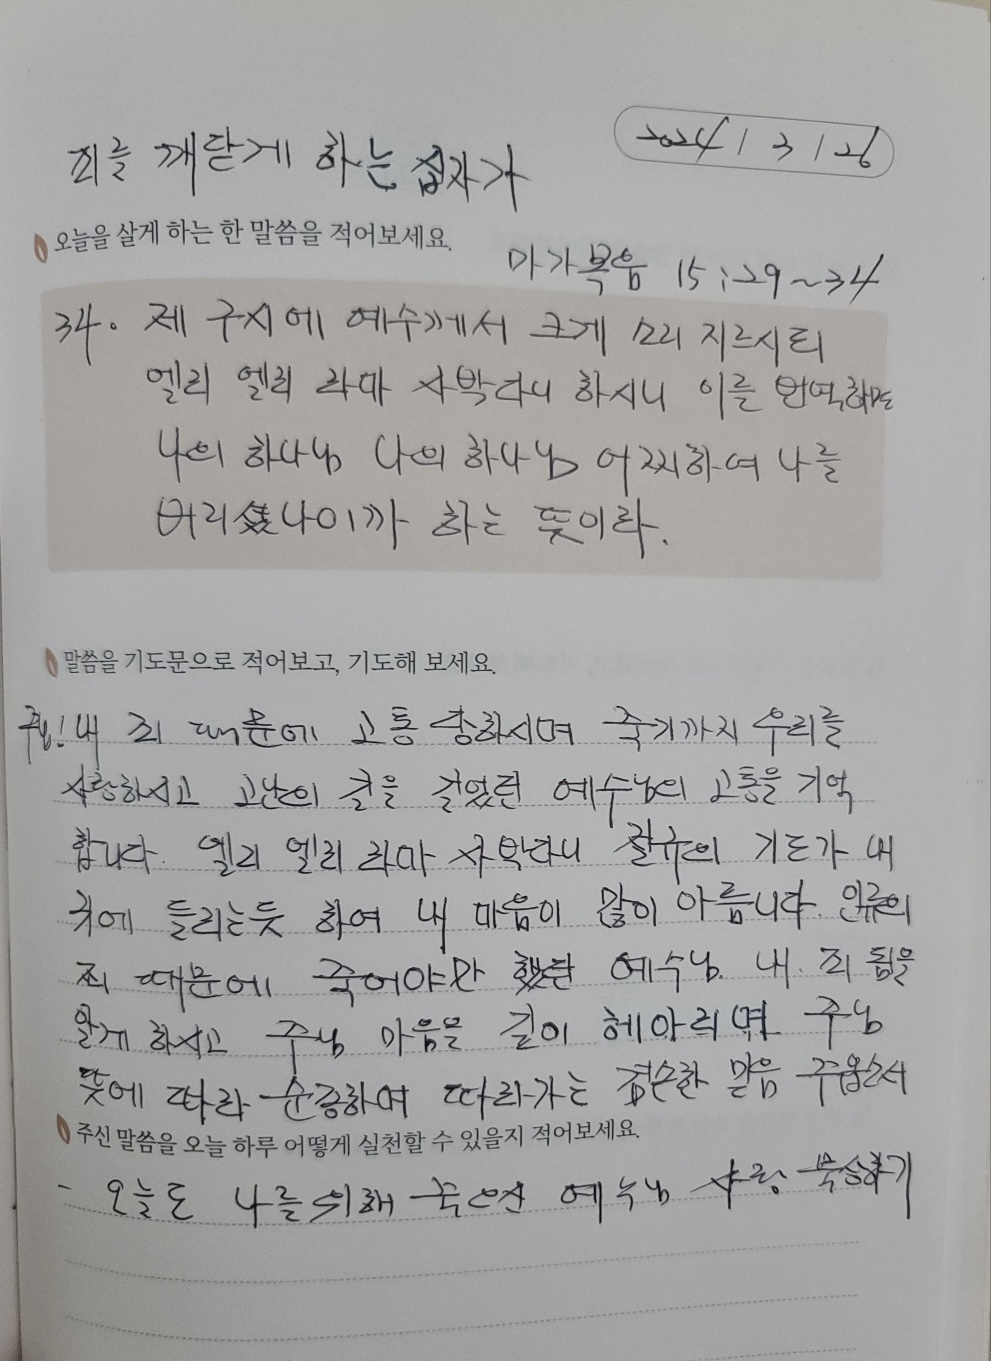 2024 / 3 / 26
죄를 깨닫게 하는 십자가
오늘을 살게 하는 한 말씀을 적어보세요.
마가복음 15:29~34
34. 제 구시에 예수께서 크게 소리 지르시되
엘리 엘리 라마 사박다니 하시니 이를 번역하면
나의 하나님 나의 하나님 어찌하여 나를
버리셨나이까 하는 뜻이라.
말씀을 기도문으로 적어보고, 기도해 보세요.
주님! 내 죄 때문에 고통 당하시며 죽기까지 우리를
사랑하시고 고난의 길을 걸었던 예수님의 고통을 기억
합니다. 엘리 엘리 라마 사박다니 절규의 기도가 내
귀에 들리는듯 하여 내 마음이 많이 아픕니다. 인류의
죄 때문에 죽어야만 했던 예수님. 내 죄 됨을
알게 하시고 주님 마음을 깊이 헤아리며 주님
뜻에 따라 순종하며 따라가는 겸손한 맘을 주옵소서
주신 말씀을 오늘 하루 어떻게 실천할 수 있을지 적어보세요.
- 오늘도 나를 위해 죽으신 예수님 사랑 묵상하기